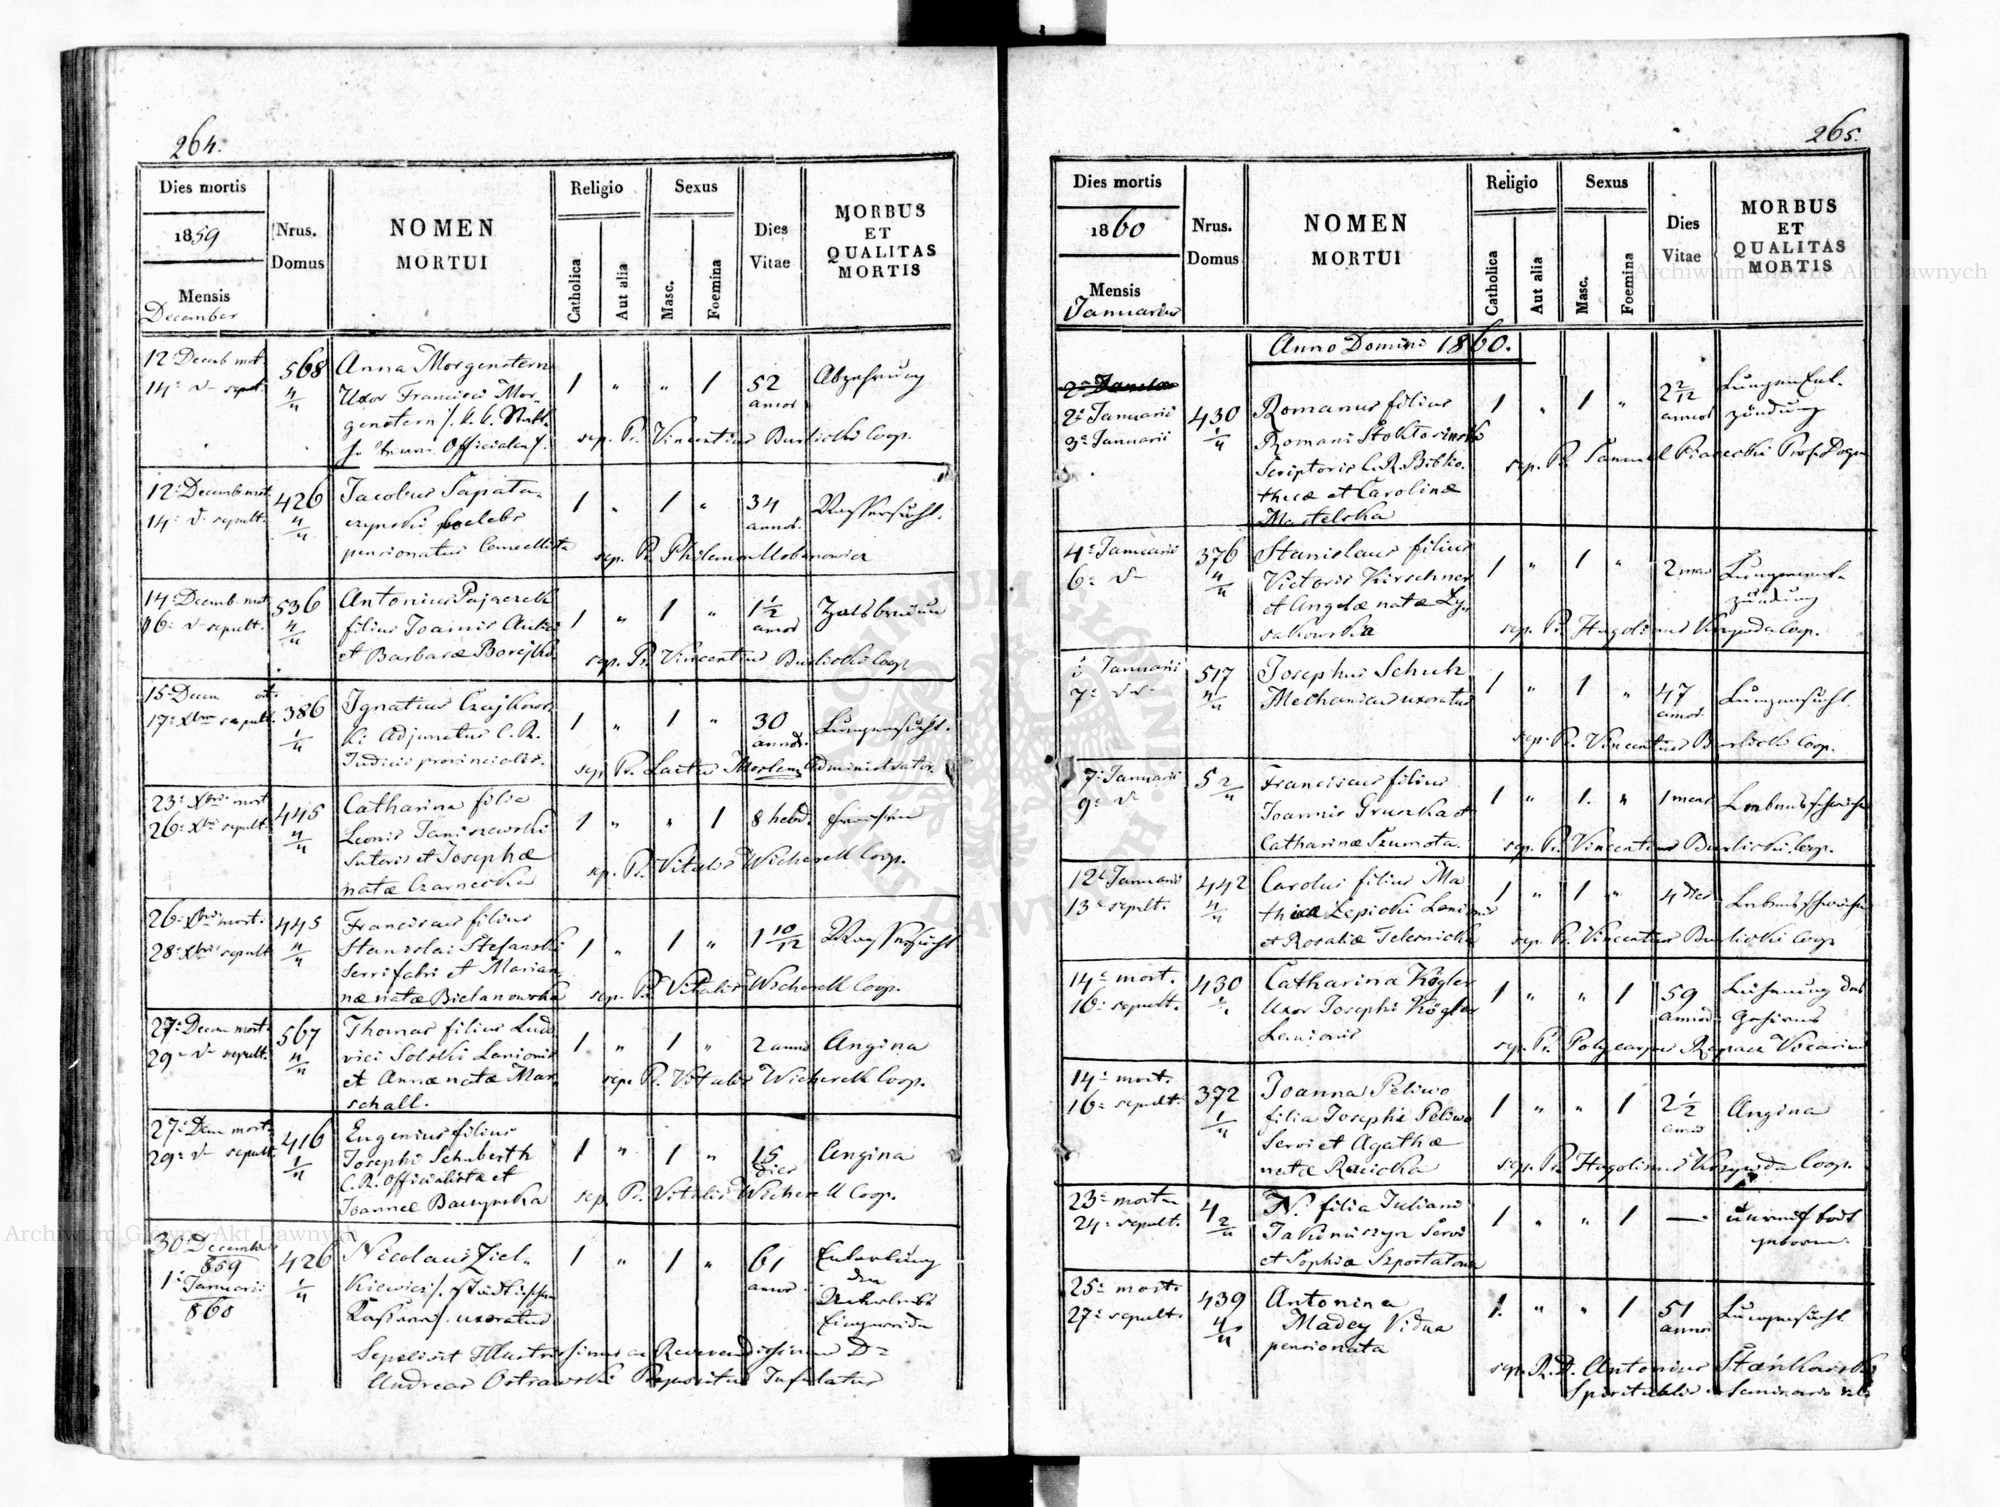 264.
Dies mortis
1859
Mensis
December
Nrus.
Domus
NOMEN
MORTUI
Religio
Catholica
Aut alia
Sexus
Masc.
Foemina
Dies
Vitae
MORBUS
ET
QUALITAS
MORTIS
12 Decemb mort
14 sepult.
568
Anna Morgenstern
Uxor Francisci Mor-
genstern /. k. k.
Officialen /.
1 " " 1 52
annor
Abzehrung
sep. Pr. Vincentius Coop.
12 Decemb mort.
14 sepult.
426
Jacobus Sapata-
czynski coelebs
pensionatus Cancellista
1 " 1 " 34
annor.
Wassersucht.
sep. Pr. Philemon Urbanowicz
14 Decemb. mort
16 sepult.
536
Antonius Pajaczek
filius Joannis
et Barbarae Borejko
1 " 1 " 1 1/2
annor
Halsbräune
sep. Pr. Vincentius Coop
15 Decem
17 Xbris sepult.
386
Ignatius Czajkows-
ki Adjunctus C. R.
Judicii provincialis.
1 " 1 " 30
annor.
Lungensucht.
sep. Pr. Laetus Administrator.
23 Xbris mort
26 Xbris sepult.
445
Catharina filia
Leonis Janiszewski
Sutoris et Josephae
natae Czarnecka
1 " " 1 8 hebd.
Fraisen
sep. Pr. Vitalis Wicherek Coop.
26 Xbris mort.
28 Xbris sepult
445
Franciscus filius
Stanislai Stefanski
Serrifabri et Marian-
nae natae Bielanowska
1 " 1 " 1 10/12
Wassersucht
sep. Pr. Vitalis Wicherek Coop.
27 Decem mort.
29 sepult.
567
Thomas filius Ludo
vici Solski Lanionis
et Annae natae Mar-
schall.
1 " 1 " 2 annor
Angina
sep. Pr. Vitalis Wicherek Coop.
27 Dem mort.
29 sepult.
416
Eugenius filius
Josephi Schuberth
C. R. Officialista et
Joannae Baczynska
1 " 1 " 15
dies
Angina
sep. Pr. Vitalis Wicherek Coop.
30 Decembris
859
1 Januarii
860
426
Nicolaus Ziel-
kiewicz /. städtischer
/. uxoratus
1 " 1 " 61
annor.
Entartung
der
Sepelivit Illustrissimus ac Reverendissimus D
Andreas Ostrawski Praepositus Infulatus
265.
Dies mortis
1860
Mensis
Januarius
Nrus.
Domus
NOMEN
MORTUI
Religio
Catholica
Aut alia
Sexus
Masc.
Foemina
Dies
Vitae
MORBUS
ET
QUALITAS
MORTIS
Anno Domini 1860.
2 Januarii
3 Januarii
430
Romanus filius
Romani
Scriptoris C. R. Biblio-
thecae et Carolinae
Martelska
1 " 1 " 2 2/12
annor
Lungenent-
zündung
sep. Pr. Samuel Piasecki Prof.
4 Januarii
6
376
Stanislaus filius
Victoris Kirschner
et Angelae natae Ly-
sakowska
1 " 1 " 2 mens
Lungenent-
zündung
sep. Pr. Hugolinus Krzywda Coop.
Januarii
7
517
Josephus Schuh
Mechanicus uxoratus
1 " 1 " 47
annor.
Lungensucht.
sep. Pr. Vincentius Coop.
7 Januarii
9
5
Franciscus filius
Joannis Gruszka et
Catharinae Szumota.
1 " 1. " 1 mens
Lebensschwäche
sep. Pr. Vincentius Coop.
12 Januarii
13 sepult.
442
Carolus filius Ma
thiae Lepicki Lanionis
et Rosaliae Telesnicka
1 " 1 " 4 dies
Lebensschwäche
sep. Pr. Vincentius Coop
14 mort.
16 sepult.
430
Catharina Kögler
Uxor Josephi Kögler
Lanionis
1 " " 1 59
annor.
Lähmung des
Gehirns
sep. Pr. Polycarpus Rapacz Vicarius
14 mort.
16 sepult.
372
Joanna Peliwo
filia Josephi Peliwo
Servi et Agathae
natae
1 " " 1 2 1/2
annor
Angina
sep. Pr. Hugolinus Krzywda Coop.
23 mort
24 sepult.
4
N. filia Juliani
Jakuniszyn Servi
et Sophiae Szportatowa
1 " " 1 —
unreif todt
geboren.
25 mort.
27 sepult.
439
Antonina
Madey Vidua
pensionata
1. " " 1 51
annor
Lungensucht.
sep. R. D. Antonius
Spiritualis Seminarii
Archiwum Główne Akt Dawnych
ARCHIWUM GŁÓWNE AKT DAWNYCH
Archiwum Główne Akt Dawnych